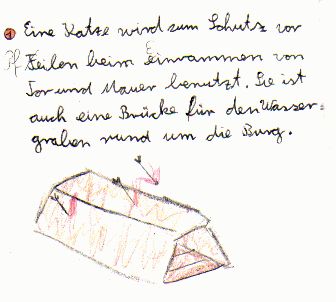 1 Eine Katze wird zum Schutz vor
Pfeilen beim Einrammen von
Tor und Mauer benutzt. Sie ist
auch eine Brücke für den Wasser=
graben rund um die Burg.